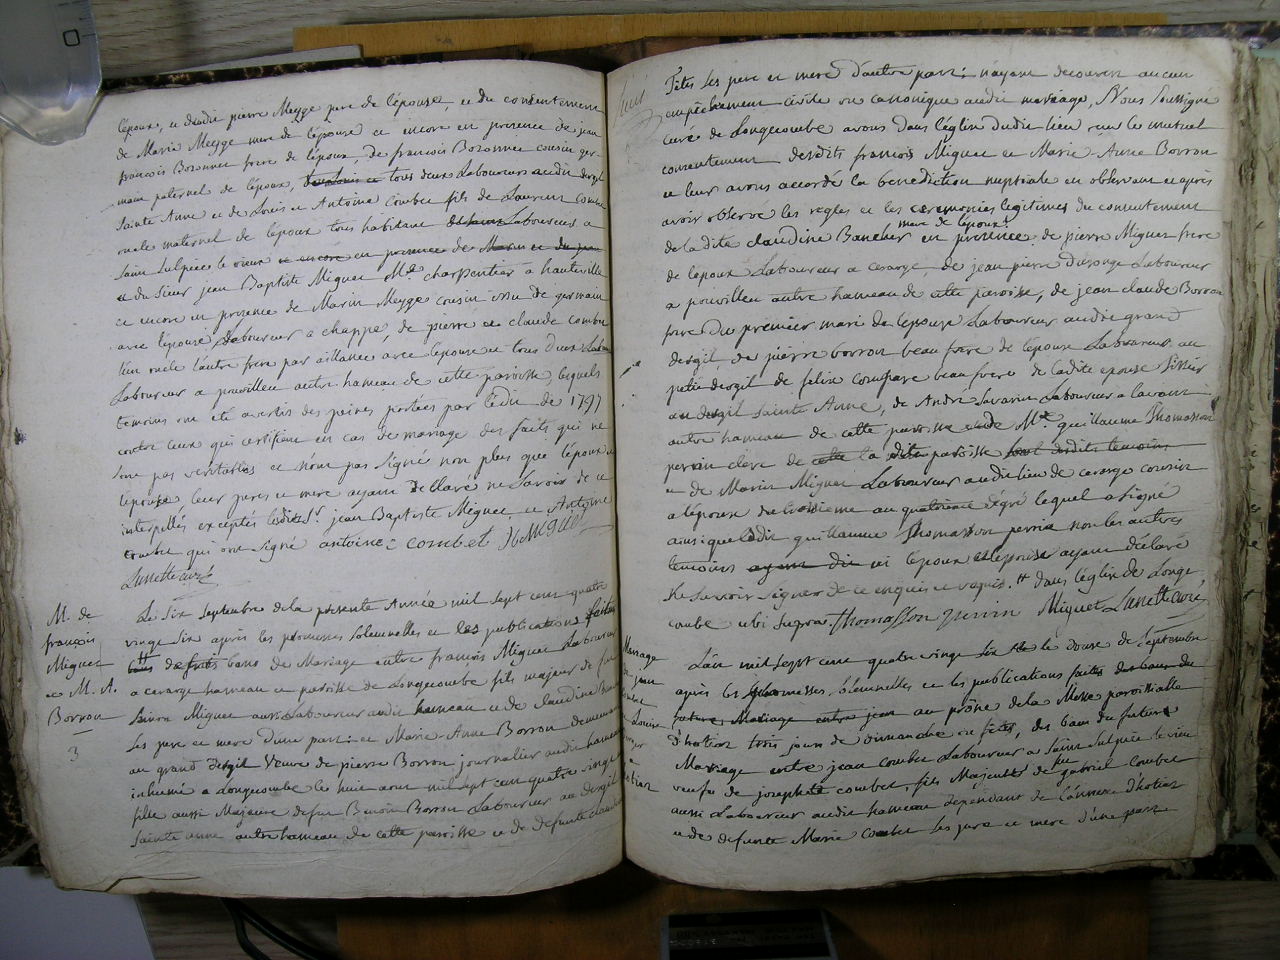 l'époux, et dudit pierre Meyge pere de l'épouse, et du consentement
de Marie Meyge mere de l'épouse et encore en presence de jean
françois Bozonnet frere de l'époux, de françois Bozonnet cousin ger-
main paternel de l'époux, tous deux Laboureurs audit dergil
Sainte Anne et de Louis et Antoine Combet fils de Laurent combet
oncle maternel de l'époux tous habitant Laboureurs a
Saint Sulpice le vieux et encore en presence de Marin
et du Sieur jean Baptiste Miguet Me charpentier a hauteville
et encore en presence de Marin Meyge cousin issu de germain
avec l'épouse Laboureur a chappe, de pierre et claude Combet
l'un oncle l'autre frere par alliance avec l'épouse et tous deux
Laboureur a pouvillieu autre hameau de cette paroisse, lesquels
temoins ont été avertis des peines portées par l'édit de 1797
contre ceux qui certifient en cas de mariage des faits qui ne
sont pas veritables et n'ont pas signé non plus que l'époux et
l'epouse leur peres et mere ayant declaré ne savoir de ce
interpellés exceptés lesdits Sr jean Baptiste Miguet, et Antoine
Combet qui ont signé antoine combet JB Miguet
Lunette curé
M. de
françois
Miguet
et M. A.
Borron
3
Le Six Septembre de la presente Année mil sept cent quatre
vingt six après les promesses solennelles et les publications faites
bans de Mariage entre françois Miguet Laboureur
a cerarge hameau et paroisse de Longecombe fils majeur de
Miguet aussi Laboureur audit hameau et de claudine
les pere et mere d'une part: et Marie-Anne Borron demeurant
au grand dergil Veuve de pierre Borron journalier audit hameau
inhumé a Longecombe le huit aout mil sept cent quatre vingt
fille aussi Majeure defunt Benoit Borron Laboureur au dergil
Sainte anne autre hameau de cette paroisse et de defunte claudine
Fêtes les pere et mere d'autre part: n'ayant decouvert aucun
empêchement civile ou canonique audit mariage, Nous Soussigné
curé de Longecombe avons dans l'église dudit lieu reçu le mutuel
consentement desdits françois Miguet et Marie-Anne Borron
et leur avons accordé la benediction nuptiale en observant et après
avoir observé les regles et les ceremonies legitimes du consentement
mere de l'époux
de la dite claudine Bancher en presence de pierre Miguet frere
de l'epoux Laboureur a cerarge, de jean pierre Laboureur
a pouvillieu autre hameau de cette paroisse, de jean claude Borron
frere du premier mari de l'epouse Laboureur audit grand
dergil, de pierre borron beau frere de l'epouse Laboureur au
petit dergil de felix compare beau frere de ladite epouse
au dergil Sainte Anne, de André Savarin Laboureur a
autre hameau de cette paroisse Me guillaume Thomasson
perrin eleve de cette la dite paroisse
et de Marin Miguet Laboureur audit lieu de cerarge cousin
a l'époux du troisieme au quatrieme degré lequel a signé
ainsi que ledit guillaume Thomasson perrin non les autres
temoins ni l'epoux et l'epouse ayant declaré
ne savoir signer de ce enquis et requis. dans l'église de Longe
combe ubi supra. Thomasson perrin Miguet Lunette curé
Mariage
de jean
Combet
Louise
L'an mil sept cent quatre vingt six le douze de Septembre
après les promesses solennelles et les publications faites des bans du
futur Mariage entre jean au prône de la Messe paroissialle
d'hotiaz trois jours de dimanche ou fêtes, des bans du futur
Mariage entre jean Combet Laboureur a Saint Sulpice le vieux
veuf de josephte combet, fils Majeur de feu gabriel Combet
aussi Laboureur audit hameau dependant de l'annexe d'hotiaz
et de defunte Marie Combet les pere et mere d'une part